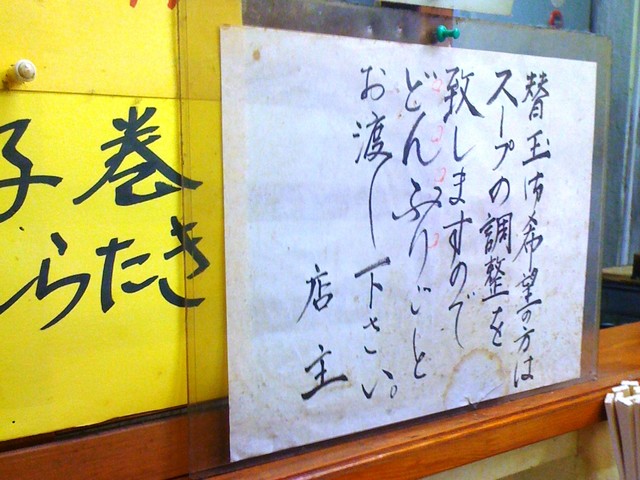 替玉御希望の方は
スープの調整を
致しますので
どんぶりごと
お渡し下さい。
店主
子巻
らたき